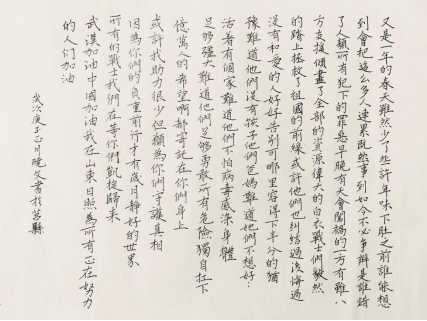 又是一年的春天難免少了些許年味下肚之前誰能想
到會把這么多人連累既然事到如今不必爭辯是誰錯
了人類所有犯下的罪惡早晚有天會闖禍的一方有難八
方支援傾盡了全部的資源偉大的白衣戰士們毅然
的踏上拯救了祖國的前線或許他們也糾結過後悔過
沒有和愛的人好好告別可哪里容得下半分的猶
豫難道他們沒有孩子他們爸媽難道她們不想好…
活著有個家難道他們不怕病毒感染身體
足够强大難道他們足够勇敢所有危險獨自扛下
億萬人的希望啊都寄託在你們身上
或許我助力很少但願為你們守護真相
因為你們的負重前行才有歲月靜好的世界
所有的戰士我們在等你們凱旋歸來
武漢加油中國加油我在山東日照為所有正在努力
的人们加油
歲次庚子正月曉文書於莒縣